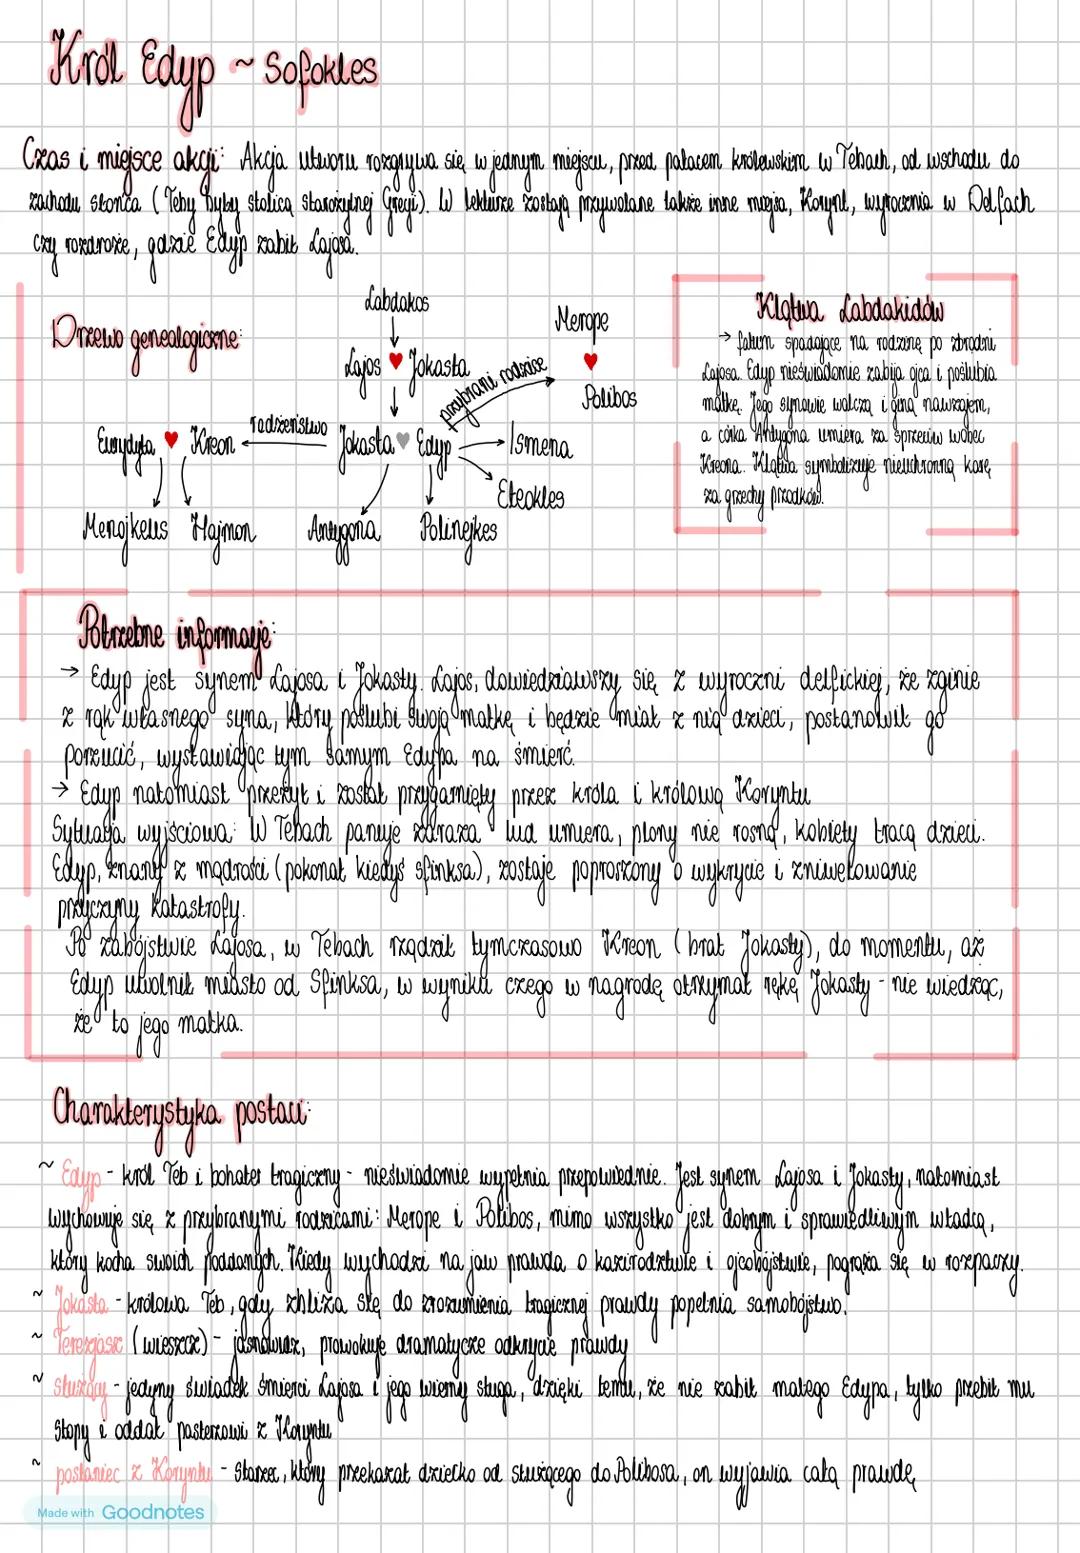 Król Edyp ~ Sofokles
Czas i miejsce akcji: Akcja utworu rozgrywa się w jednym miejscu, przed pałacem królewskim w Tebach, od wschodu do
zachodu słońca (Teby były stolicą starożytnej Grecji). W lekturze zostają przywołane także inne miejsca, Korynt, wyrocznia w Delfach
czy rozdroże, gdzie Edyp zabił Lajosa.
Drzewo genealogiczne:
Labdakos
Lajos ♥ Jokasta
Merope
♥
Polibos
przybrani rodzice
Eurydyka ♥ Kreon
rodzeństwo
Jokasta ♥ Edyp
Ismena
Eteokles
Menojkeus Hajmon
Antygona
Polinejkes
Klątwa Labdakidów
→ fatum spadające na rodzinę po zbrodni
Lajosa. Edyp nieświadomie zabija ojca i poślubia
matkę. Jego synowie walczą i giną nawzajem,
a córka Antygona umiera za sprzeciw wobec
Kreona. Klątwa symbolizuje nieuchronną karę
za grzechy przodków.
Potrzebne informacje:
→ Edyp jest synem Lajosa i Jokasty. Lajos, dowiedziawszy się z wyroczni delfickiej, że zginie
z rąk własnego syna, który poślubi swoją matkę i będzie miał z nią dzieci, postanowił go
porzucić, wystawiając tym samym Edypa na śmierć.
→ Edyp natomiast przeżył i został przygarnięty przez króla i królową Koryntu
Sytuacja wyjściowa: W Tebach panuje zaraza lud umiera, plony nie rosną, kobiety tracą dzieci.
Edyp, znany z mądrości (pokonał kiedyś sfinksa), zostaje poproszony o wykrycie i zniwelowanie
przyczyny katastrofy.
Po zabójstwie Lajosa, w Tebach rządził tymczasowo Kreon (brat Jokasty), do momentu, aż
Edyp uwolnił miasto od Sfinksa, w wyniku czego w nagrodę otrzymał rękę Jokasty - nie wiedząc,
że to jego matka.
Charakterystyka postaci:
~ Edyp - król Teb i bohater tragiczny - nieświadomie wypełnia przepowiednie. Jest synem Lajosa i Jokasty, natomiast
wychowuje się z przybranymi rodzicami: Merope i Polibos, mimo wszystko jest dobrym i sprawiedliwym władcą,
który kocha swoich poddanych. Kiedy wychodzi na jaw prawda o kazirodztwie i ojcobójstwie, pogrąża się w rozpaczy.
~ Jokasta - królowa Teb, gdy zbliża się do zrozumienia tragicznej prawdy popełnia samobójstwo.
~ Terezjasz (wieszcz) - jasnowidz, prowokuje dramatyczne odkrycie prawdy
~ Służący - jedyny świadek śmierci Lajosa i jego wierny sługa, dzięki temu, że nie zabił małego Edypa, tylko przebił mu
stopy i oddał pasterzowi z Koryntu
~ posłaniec z Koryntu - starzec, który przekazał dziecko od służącego do Polibosa, on wyjawia całą prawdę
Made with Goodnotes